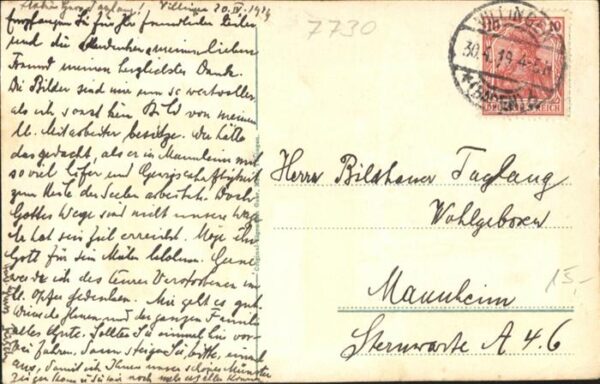 Villingen 30.IV.1919
Empfangen Sie für die freundlichen Zeilen
und die Andenken meines lieben
Freund meinen herzlichsten Dank.
Die Bilder sind mir um so wertvoller
als ich sonst kein Bild von meinem
lb. Mitarbeiter besitze. Wer hätte
das gedacht, als er in Mannheim mit
so viel Eifer und Gewissenhaftigkeit
zum Heile der Seelen arbeitete. Doch
Gottes Wege sind nicht unsere Wege
Er hat sein Ziel erreicht. Möge ihn
Gott für sein Mühen belohnen. Gerne
werde ich des teuren Verstorbenen im
hl. Opfer gedenken. Mir geht es gut.
Wünsche Ihnen und der ganzen Familie
alles Gute. Sollten Sie einmal hier vor-
bei fahren, dann steigen Sie, bitte, einmal
aus, damit ich Ihnen unser schönes Münster
zeigen kann
7730
VILLINGEN
30.4.19. 4-5
(BADEN)
10
10
Herrn Bildhauer Taglang
Wohlgeboren
Mannheim
Sternwarte A 4.6
15,-